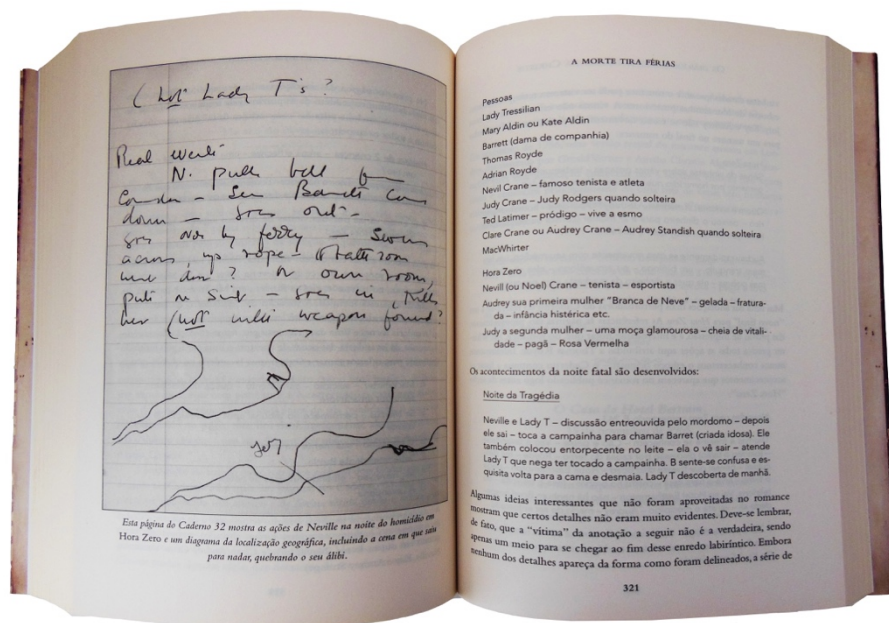 ( not Lady T's ?
Real events
N. pulls bell
Sees Barrett
down — goes out —
goes over by ferry — Swims
across, up rope —
? or own room,
puts on — goes in, kills
her (not with weapon found?
Esta página do Caderno 32 mostra as ações de Neville na noite do homicídio em
Hora Zero e um diagrama da localização geográfica, incluindo a cena em que saiu
para nadar, quebrando o seu álibi.
A MORTE TIRA FÉRIAS
Pessoas
Lady Tressilian
Mary Aldin ou Kate Aldin
Barrett (dama de companhia)
Thomas Royde
Adrian Royde
Nevil Crane – famoso tenista e atleta
Judy Crane – Judy Rodgers quando solteira
Ted Latimer – pródigo – vive a esmo
Clare Crane ou Audrey Crane – Audrey Standish quando solteira
MacWhirter
Hora Zero
Nevill (ou Noel) Crane – tenista – esportista
Audrey sua primeira mulher “Branca de Neve” – gelada – fratura-
da – infância histérica etc.
Judy a segunda mulher – uma moça glamourosa – cheia de vitali-
dade – pagã – Rosa Vermelha
Os acontecimentos da noite fatal são desenvolvidos:
Noite da Tragédia
Neville e Lady T – discussão entreouvida pelo mordomo – depois
ele sai – toca a campainha para chamar Barret (criada idosa). Ele
também colocou entorpecente no leite – ela o vê sair – atende
Lady T que nega ter tocado a campainha. B sente-se confusa e es-
quisita volta para a cama e desmaia. Lady T descoberta de manhã.
Algumas ideias interessantes que não foram aproveitadas no romance
mostram que certos detalhes não eram muito evidentes. Deve-se lembrar,
de fato, que a “vítima” da anotação a seguir não é a verdadeira, sendo
apenas um meio para se chegar ao fim desse enredo labiríntico. Embora
nenhum dos detalhes apareça da forma como foram delineados, a série de
321